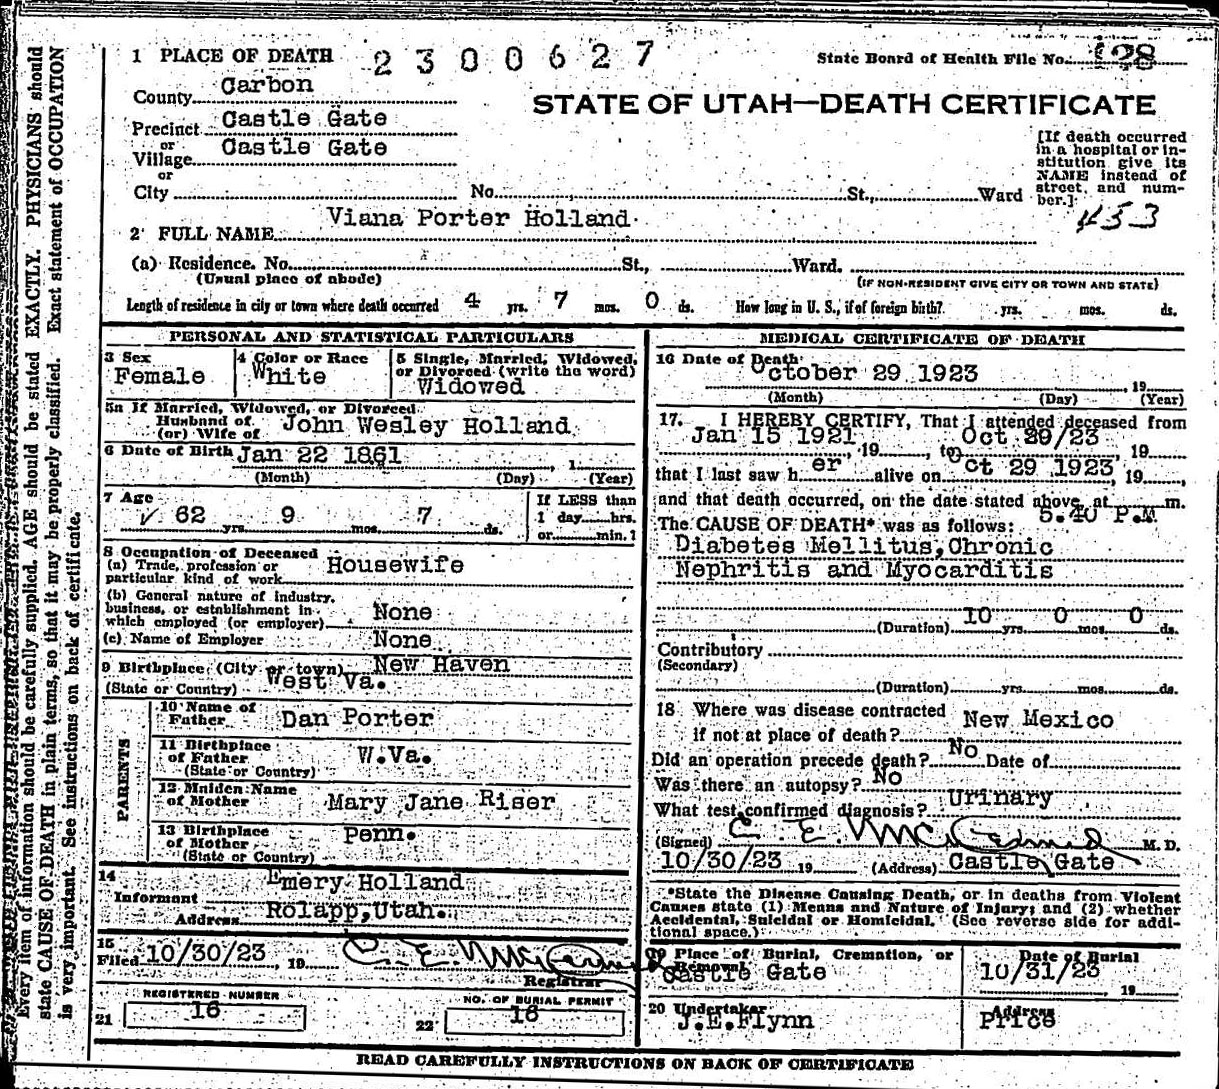 1 PLACE OF DEATH 2300627 State Board of Health File No. 128
County Carbon
STATE OF UTAH—DEATH CERTIFICATE
Precinct Castle Gate
or
Village Castle Gate
or
City No. St., Ward
[If death occurred
in a hospital or in-
stitution give its
NAME instead of
street, and num-
ber.]
453
2 FULL NAME Viana Porter Holland
(a) Residence. No. St., Ward.
(Usual place of abode) (IF NON-RESIDENT GIVE CITY OR TOWN AND STATE)
Length of residence in city or town where death occurred 4 yrs. 7 mos. 0 ds. How long in U. S., if of foreign birth? yrs. mos. ds.
PERSONAL AND STATISTICAL PARTICULARS
3 Sex
Female
4 Color or Race
White
5 Single, Married, Widowed,
or Divorced (write the word)
Widowed
5a If Married, Widowed, or Divorced
Husband of
(or) Wife of John Wesley Holland
6 Date of Birth Jan 22 1861, 1
(Month) (Day) (Year)
7 Age
62 yrs. 9 mos. 7 ds.
If LESS than
1 day hrs.
or min.?
8 Occupation of Deceased
(a) Trade, profession or
particular kind of work Housewife
(b) General nature of industry,
business, or establishment in
which employed (or employer) None
(c) Name of Employer None
9 Birthplace (City or town) New Haven
(State or Country) West Va.
PARENTS
10 Name of
Father Dan Porter
11 Birthplace
of Father W.Va.
(State or Country)
12 Maiden Name
of Mother Mary Jane Riser
13 Birthplace
of Mother Penn.
(State or Country)
14
Informant Emery Holland
Address Rolapp, Utah.
15
Filed 10/30/23, 19 C. E. McDermid
Registrar
REGISTERED NUMBER
21 16
NO. OF BURIAL PERMIT
22 16
MEDICAL CERTIFICATE OF DEATH
16 Date of Death
October 29 1923, 19
(Month) (Day) (Year)
17. I HEREBY CERTIFY, That I attended deceased from
Jan 15 1921, 19, to Oct 29/23, 19
that I last saw her alive on Oct 29 1923, 19,
and that death occurred, on the date stated above, at m.
5.40 P.M
The CAUSE OF DEATH* was as follows:
Diabetes Mellitus, Chronic
Nephritis and Myocarditis
(Duration) 10 yrs. 0 mos. 0 ds.
Contributory
(Secondary)
(Duration) yrs. mos. ds.
18 Where was disease contracted
if not at place of death? New Mexico
Did an operation precede death? No Date of
Was there an autopsy? No
What test confirmed diagnosis? Urinary
(Signed) C. E. McDermid M. D.
10/30/23 19 (Address) Castle Gate
*State the Disease Causing Death, or in deaths from Violent
Causes state (1) Means and Nature of Injury; and (2) whether
Accidental, Suicidal or Homicidal. (See reverse side for addi-
tional space.)
19 Place of Burial, Cremation, or
Removal
Castle Gate
Date of Burial
10/31/23
19
20 Undertaker
J.E.Flynn
Address
Price
READ CAREFULLY INSTRUCTIONS ON BACK OF CERTIFICATE
Every item of information should be carefully supplied. AGE should be stated EXACTLY. PHYSICIANS should
state CAUSE OF DEATH in plain terms, so that it may be properly classified. Exact statement of OCCUPATION
is very important. See instructions on back of certificate.